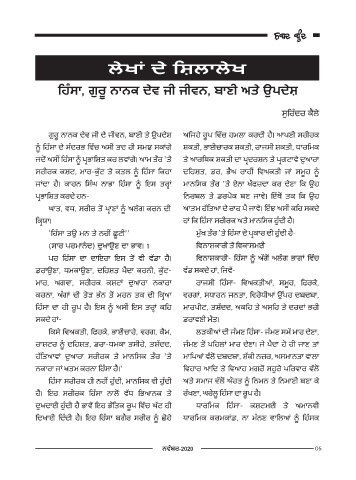 ਲੇਖਾਂ ਦੇ ਸ਼ਿਲਾਲੇਖ
ਹਿੰਸਾ, ਗੁਰੂ ਨਾਨਕ ਦੇਵ ਜੀ ਜੀਵਨ, ਬਾਣੀ ਅਤੇ ਉਪਦੇਸ਼
ਸੁਰਿੰਦਰ ਕੈਲੇ
ਗੁਰੂ ਨਾਨਕ ਦੇਵ ਜੀ ਦੇ ਜੀਵਨ, ਬਾਣੀ ਤੇ ਉਪਦੇਸ਼
ਨੂੰ ਹਿੰਸਾ ਦੇ ਸੰਦਰਭ ਵਿੱਚ ਅਸੀਂ ਤਦ ਹੀ ਸਮਝ ਸਕਾਂਗੇ
ਜਦੋਂ ਅਸੀਂ ਹਿੰਸਾ ਨੂੰ ਪ੍ਰਭਾਸ਼ਿਤ ਕਰ ਲਵਾਂਗੇ। ਆਮ ਤੌਰ 'ਤੇ
ਸਰੀਰਕ ਕਸ਼ਟ, ਮਾਰ-ਕੁੱਟ ਤੇ ਕਤਲ ਨੂੰ ਹਿੰਸਾ ਕਿਹਾ
ਜਾਂਦਾ ਹੈ। ਕਾਹਨ ਸਿੰਘ ਨਾਭਾ ਹਿੰਸਾ ਨੂੰ ਇਸ ਤਰ੍ਹਾਂ
ਪ੍ਰਭਾਸ਼ਿਤ ਕਰਦੇ ਹਨ-
ਘਾਤ, ਵਧ, ਸਰੀਰ ਤੋਂ ਪ੍ਰਾਣਾਂ ਨੂੰ ਅਲੱਗ ਕਰਨ ਦੀ
ਕ੍ਰਿਯਾ।
'ਹਿੰਸਾ ਤਉ ਮਨ ਤੇ ਨਹੀਂ ਛੂਟੀ''
(ਸਾਰ ਪਰਮਾਨੰਦ) ਦੁਖਾਉਣ ਦਾ ਭਾਵ। 1
ਪਰ ਹਿੰਸਾ ਦਾ ਦਾਇਰਾ ਇਸ ਤੋਂ ਵੀ ਵੱਡਾ ਹੈ।
ਡਰਾਉਣਾ, ਧਮਕਾਉਣਾ, ਦਹਿਸ਼ਤ ਪੈਦਾ ਕਰਨੀ, ਕੁੱਟ-
ਮਾਰ, ਅਗਵਾ, ਸਰੀਰਕ ਕਸ਼ਟਾਂ ਦੁਆਰਾ ਨਕਾਰਾ
ਕਰਨਾ, ਅੰਗਾਂ ਦੀ ਤੋੜ ਭੰਨ ਤੋਂ ਮਰਨ ਤਕ ਦੀ ਕ੍ਰਿਆ
ਹਿੰਸਾ ਦਾ ਹੀ ਰੂਪ ਹੈ। ਇਸ ਨੂੰ ਅਸੀਂ ਇਸ ਤਰ੍ਹਾਂ ਕਹਿ
ਸਕਦੇ ਹਾਂ-
ਕਿਸੇ ਵਿਅਕਤੀ, ਫਿਰਕੇ, ਭਾਈਚਾਰੇ, ਵਰਗ, ਕੌਮ,
ਰਾਸ਼ਟਰ ਨੂੰ ਦਹਿਸ਼ਤ, ਡਰਾ-ਧਮਕਾ ਤਸੀਹੇ, ਤਸ਼ੱਦਦ,
ਹੱਤਿਆਵਾਂ ਦੁਆਰਾ ਸਰੀਰਕ ਤੇ ਮਾਨਸਿਕ ਤੌਰ 'ਤੇ
ਨਕਾਰਾ ਜਾਂ ਖ਼ਤਮ ਕਰਨਾ ਹਿੰਸਾ ਹੈ।'
ਹਿੰਸਾ ਸਰੀਰਕ ਹੀ ਨਹੀਂ ਹੁੰਦੀ, ਮਾਨਸਿਕ ਵੀ ਹੁੰਦੀ
ਹੈ। ਇਹ ਸਰੀਰਕ ਹਿੰਸਾ ਨਾਲੋਂ ਵੱਧ ਭਿਆਨਕ ਤੇ
ਦੁਖਦਾਈ ਹੁੰਦੀ ਹੈ ਭਾਵੇਂ ਇਹ ਭੌਤਿਕ ਰੂਪ ਵਿੱਚ ਘੱਟ ਹੀ
ਦਿਖਾਈ ਦਿੰਦੀ ਹੈ। ਇਹ ਹਿੰਸਾ ਬਗੈਰ ਸਰੀਰ ਨੂੰ ਛੋਹੇ
ਅਜਿਹੇ ਰੂਪ ਵਿੱਚ ਹਮਲਾ ਕਰਦੀ ਹੈ। ਆਪਣੀ ਸਰੀਰਕ
ਸ਼ਕਤੀ, ਭਾਈਚਾਰਕ ਸ਼ਕਤੀ, ਰਾਜਸੀ ਸ਼ਕਤੀ, ਧਾਰਮਿਕ
ਤੇ ਆਰਥਿਕ ਸ਼ਕਤੀ ਦਾ ਪ੍ਰਦਰਸ਼ਨ ਤੇ ਪ੍ਰਗਟਾਵੇ ਦੁਆਰਾ
ਦਹਿਸ਼ਤ, ਡਰ, ਭੈਅ ਰਾਹੀਂ ਵਿਅਕਤੀ ਜਾਂ ਸਮੂਹ ਨੂੰ
ਮਾਨਸਿਕ ਤੌਰ 'ਤੇ ਏਨਾ ਖੌਫਜ਼ਦਾ ਕਰ ਦੇਣਾ ਕਿ ਉਹ
ਨਿਰਬਲ ਤੇ ਡਰਪੋਕ ਬਣ ਜਾਵੇ। ਇੱਥੋਂ ਤਕ ਕਿ ਉਹ
ਆਤਮ ਹੱਤਿਆ ਦੇ ਰਾਹ ਪੈ ਜਾਵੇ। ਇੰਞ ਅਸੀਂ ਕਹਿ ਸਕਦੇ
ਹਾਂ ਕਿ ਹਿੰਸਾ ਸਰੀਰਕ ਅਤੇ ਮਾਨਸਿਕ ਹੁੰਦੀ ਹੈ।
ਮੁੱਖ ਤੌਰ 'ਤੇ ਹਿੰਸਾ ਦੋ ਪ੍ਰਕਾਰ ਦੀ ਹੁੰਦੀ ਹੈ-
ਵਿਨਾਸ਼ਕਾਰੀ ਤੇ ਵਿਕਾਸਮਈ
ਵਿਨਾਸ਼ਕਾਰੀ- ਹਿੰਸਾ ਨੂੰ ਅੱਗੋਂ ਅਲੱਗ ਭਾਗਾਂ ਵਿੱਚ
ਵੰਡ ਸਕਦੇ ਹਾਂ, ਜਿਵੇਂ-
ਰਾਜਸੀ ਹਿੰਸਾ- ਵਿਅਕਤੀਆਂ, ਸਮੂਹ, ਫਿਰਕੇ,
ਵਰਗਾਂ, ਸਧਾਰਨ ਜਨਤਾ, ਵਿਰੋਧੀਆਂ ਉੱਪਰ ਦਬਦਬਾ,
ਮਾਰਪੀਟ, ਤਸ਼ੱਦਦ, ਅਕਹਿ ਤੇ ਅਸਹਿ ਤੇ ਦਰਦਾਂ ਭਰੀ
ਡਰਾਵਣੀ ਮੌਤ।
ਲੜਕੀਆਂ ਦੀ ਜੰਮਣ ਹਿੰਸਾ- ਜੰਮਣ ਸਮੇਂ ਮਾਰ ਦੇਣਾ,
ਜੰਮਣ ਤੋਂ ਪਹਿਲਾਂ ਮਾਰ ਦੇਣਾ। ਜੇ ਪੈਦਾ ਹੋ ਹੀ ਜਾਣ ਤਾਂ
ਮਾਪਿਆਂ ਵੱਲੋਂ ਦਬਦਬਾ, ਸ਼ੱਕੀ ਨਜ਼ਰ, ਅਸਮਾਨਤਾ ਵਾਲਾ
ਵਿਹਾਰ ਆਦਿ ਤੇ ਵਿਆਹ ਮਗਰੋਂ ਸਹੁਰੇ ਪਰਿਵਾਰ ਵੱਲੋਂ
ਅਤੇ ਸਮਾਜ ਵੱਲੋਂ ਔਰਤ ਨੂੰ ਨਿਮਨ ਤੇ ਨਿਮਾਣੀ ਬਣਾ ਕੇ
ਰੱਖਣਾ, ਘਰੇਲੂ ਹਿੰਸਾ ਦਾ ਰੂਪ ਹੈ।
ਧਾਰਮਿਕ ਹਿੰਸਾ- ਕਸ਼ਟਮਈ ਤੇ ਅਮਾਨਵੀ
ਧਾਰਮਿਕ ਕਰਮਕਾਂਡ, ਨਾ ਮੰਨਣ ਵਾਲਿਆਂ ਨੂੰ ਹਿੰਸਕ
ਨਵੰਬਰ-2020
05